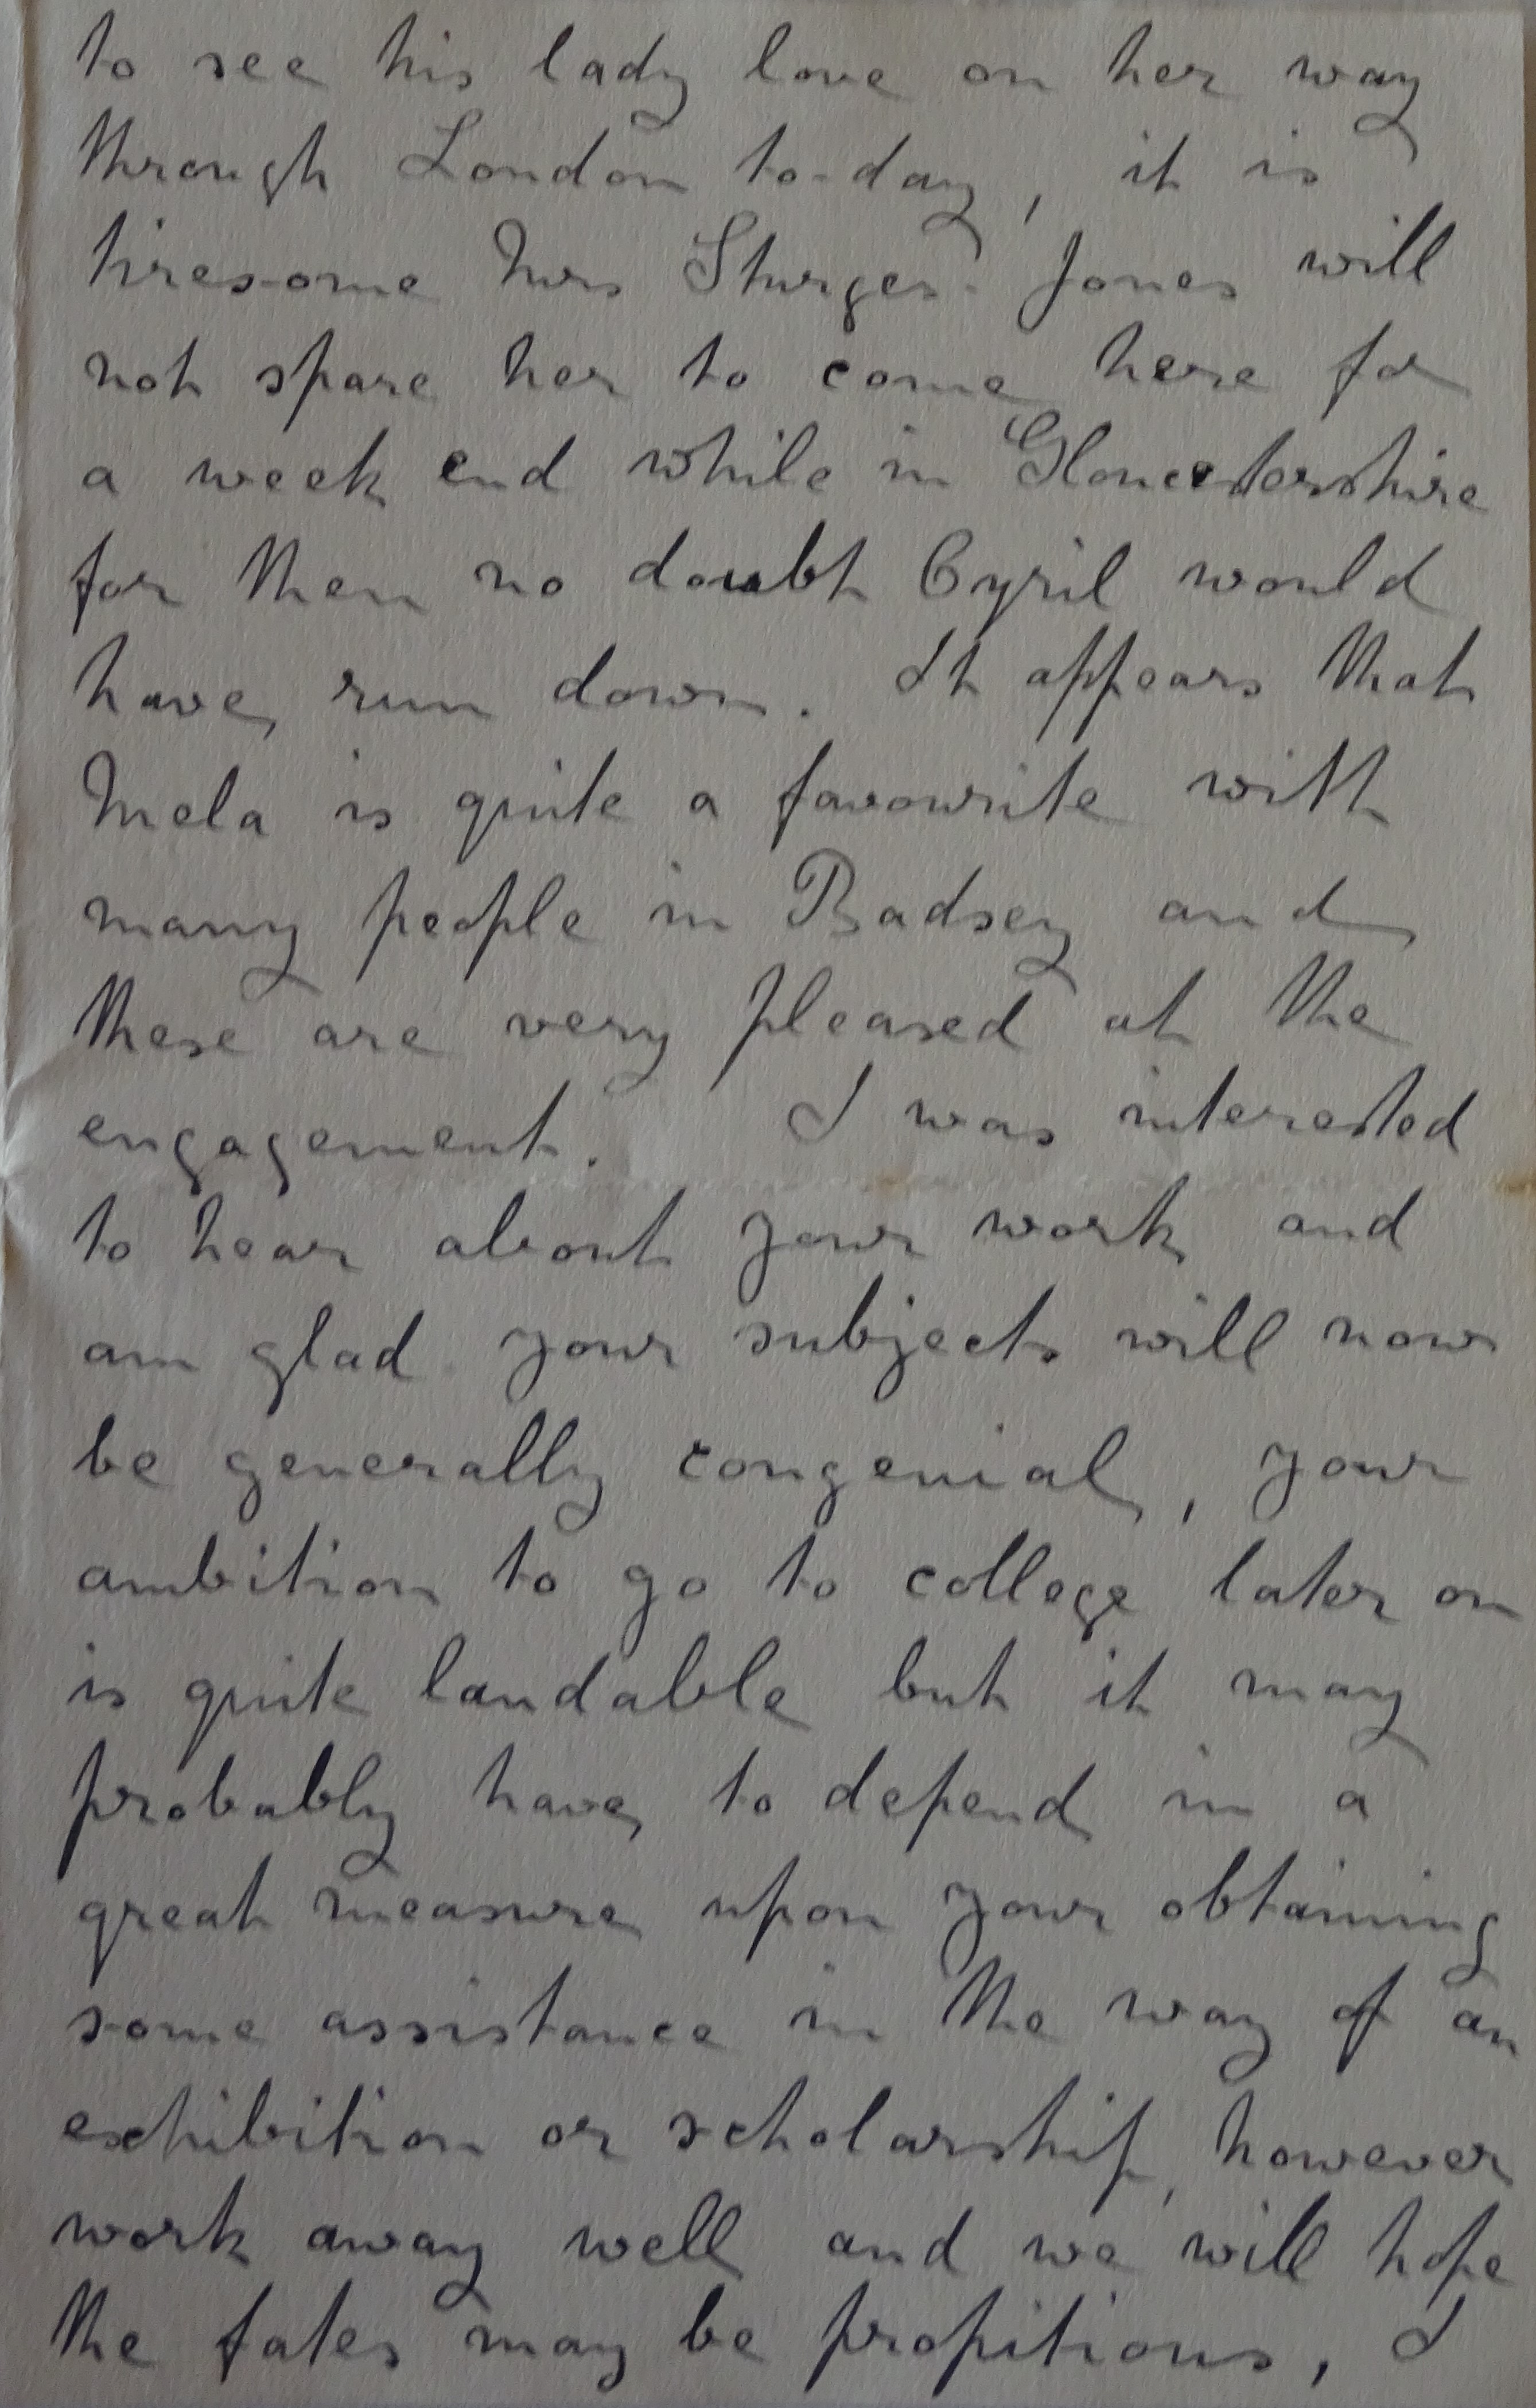 to see his lady love on her way
through London to-day, it is
tiresome Mrs Sturges-Jones will
not spare her to come here for
a week end while in Gloucestershire
for then no doubt Cyril would
have run down. It appears that
Mela is quite a favourite with
many people in Badsey and
these are very pleased at the
engagement. I was interested
to hear about your work and
am glad your subjects will now
be generally congenial, your
ambition to go to college later on
is quite laudable but it may
probably have to depend in a
great measure upon your obtaining
some assistance in the way of an
exhibition or scholarship, however
work away well and we will hope
the fates may be propitious, I